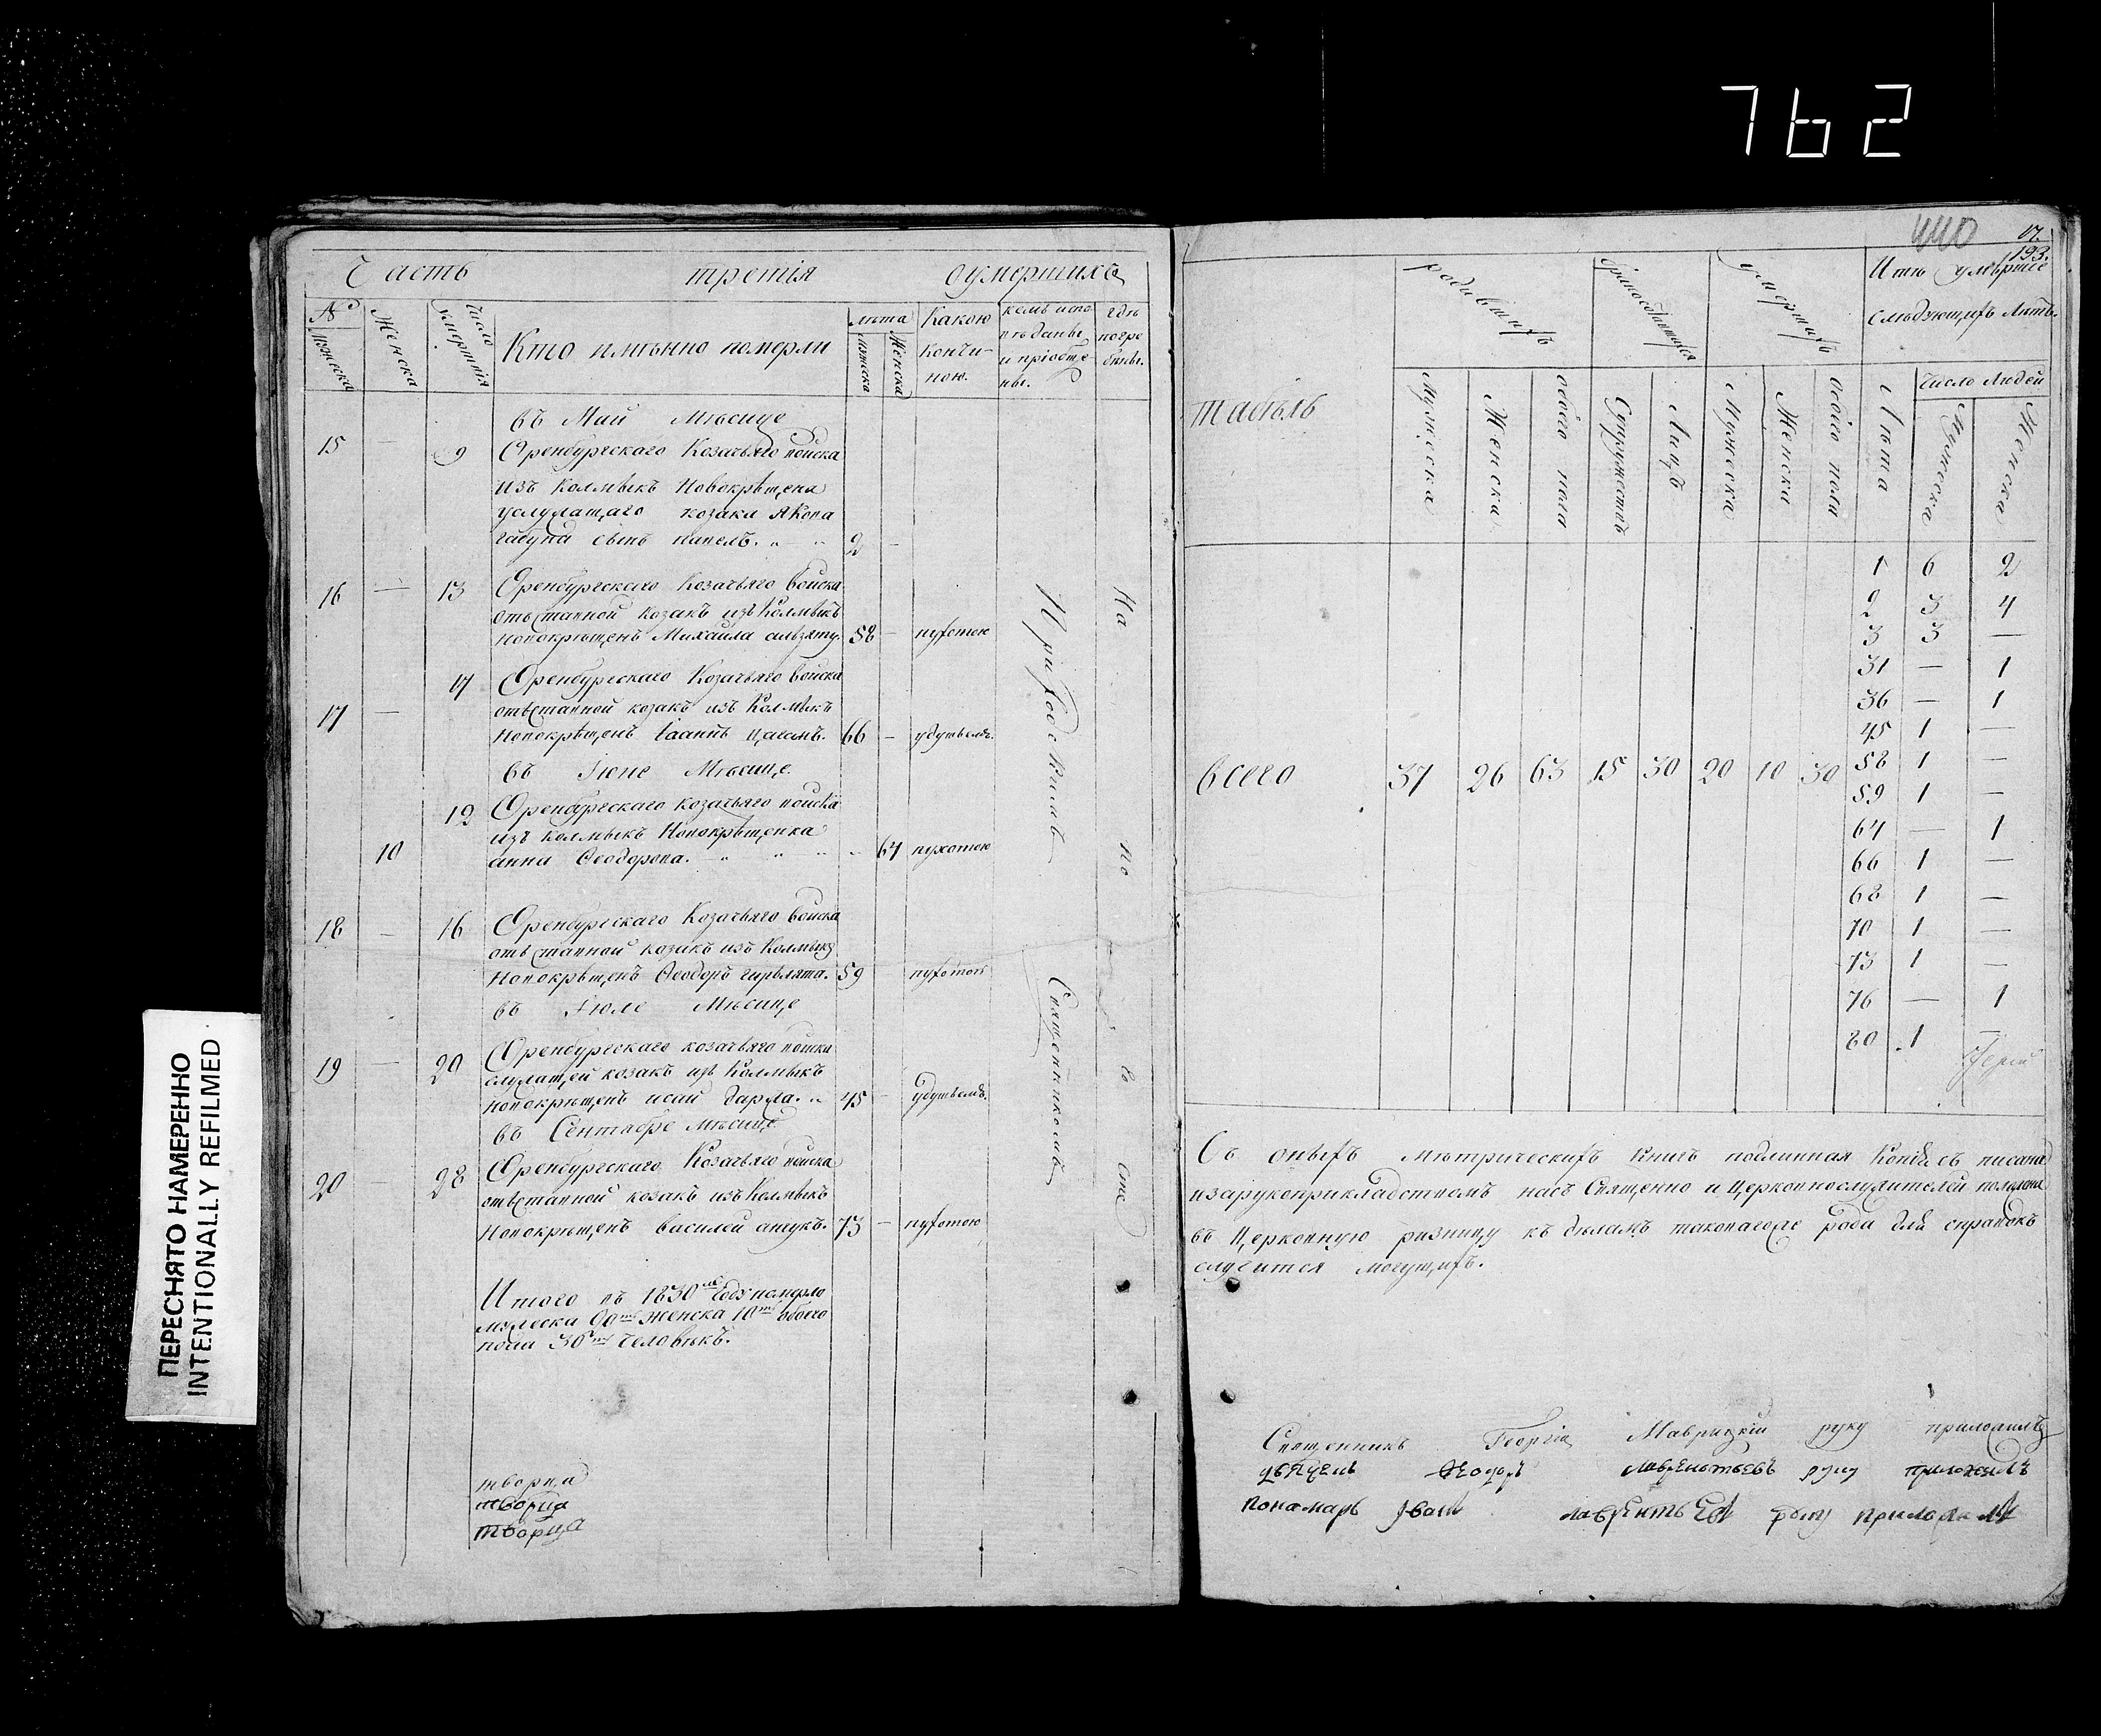 762
ПЕРЕСНЯТО НАМЕРЕННО
INTENTIONALLY REFILMED
Часть третія оумершихъ
№
Мужеска
Женска
Число умертвія
Кто имѣнно померли
лѣта
мужска
Женска
Какою кончи-ною.
кемъ испо
вѣданы
и пріобще
ны.
гдѣ
погре
бѣны.
въ Май Мѣсяце
15 — 9 Оренбургскаго Козачьяго войска
изъ Колмыкъ Новокрѣщена
служащаго козака Якова
сынъ павелъ. 2 —
16 — 13 Оренбургскаго Козачьяго войска
отвставной козакъ изъ Колмыкъ
новокрѣщенъ Михайла 58 — пухотою
17 — 17 Оренбургскаго Козачьяго войска
отвставной козакъ изъ Колмыкъ
Новокрѣщенъ Іаанъ цаганъ. 66 — удушьемъ.
въ Іюне Мѣсяце.
10 12 Оренбургскаго козачьяго войска
изъ колмыкъ Новокрѣщенка
анна Ѳеодорова. 64 пухотою
18 — 16 Оренбургскаго Козачьяго войска
отвставной козакъ изъ Колмыкъ
Новокрѣщенъ Ѳеодоръ 59 пухотою
въ Іюле Мѣсяце
19 — 20 Оренбургскаго козачьяго войска
служащей козакъ изъ Колмыкъ
новокрѣщенъ исай дарма. 45 — удушьемъ.
въ Сентябре мѣсяце
20 — 28 Оренбургскаго Козачьяго войска
отвставной козакъ изъ Колмыкъ
Новокрѣщенъ василей 73 — пухотою
Приходскимъ Священникомъ
На по го сте
Итого въ 1830мъ Году померло
мужеска женска 10ть обоего
пола 30ть человѣкъ.
творца
творца
творца
440
17.
193.
табѣль
родившихъ
умершихъ
Итѣ умѣршіе
слѣдующихъ лѣтъ.
Мужеска
Женска
обоего пола
Супружествъ
Лицъ
Мужеска
Женска
обоего пола
Лѣта
число людей
Мужеска
Женска
всего 37 26 63 15 30 20 10 30
1 6 2
2 3 4
3 3 —
31 — 1
36 — 1
45 1 —
58 1 —
59 1 —
64 — 1
66 1 —
68 1 —
70 1 —
73 1 —
76 — 1
80 1 —
Съ оныхъ мѣтрическихъ книгъ подлинная Копія съ писана
изарукоприкладствомъ насъ Священно и Церковнослужителей положена
въ Церковную ризницу къ дѣламъ таковагоже рода для справокъ
случится могущихъ.
Священникъ Георгій Маврицкій руку приложилъ
Ѳеодоръ лаврентьевъ руку приложилъ
пономарь Іванъ лаврентьевъ руку приложилъ